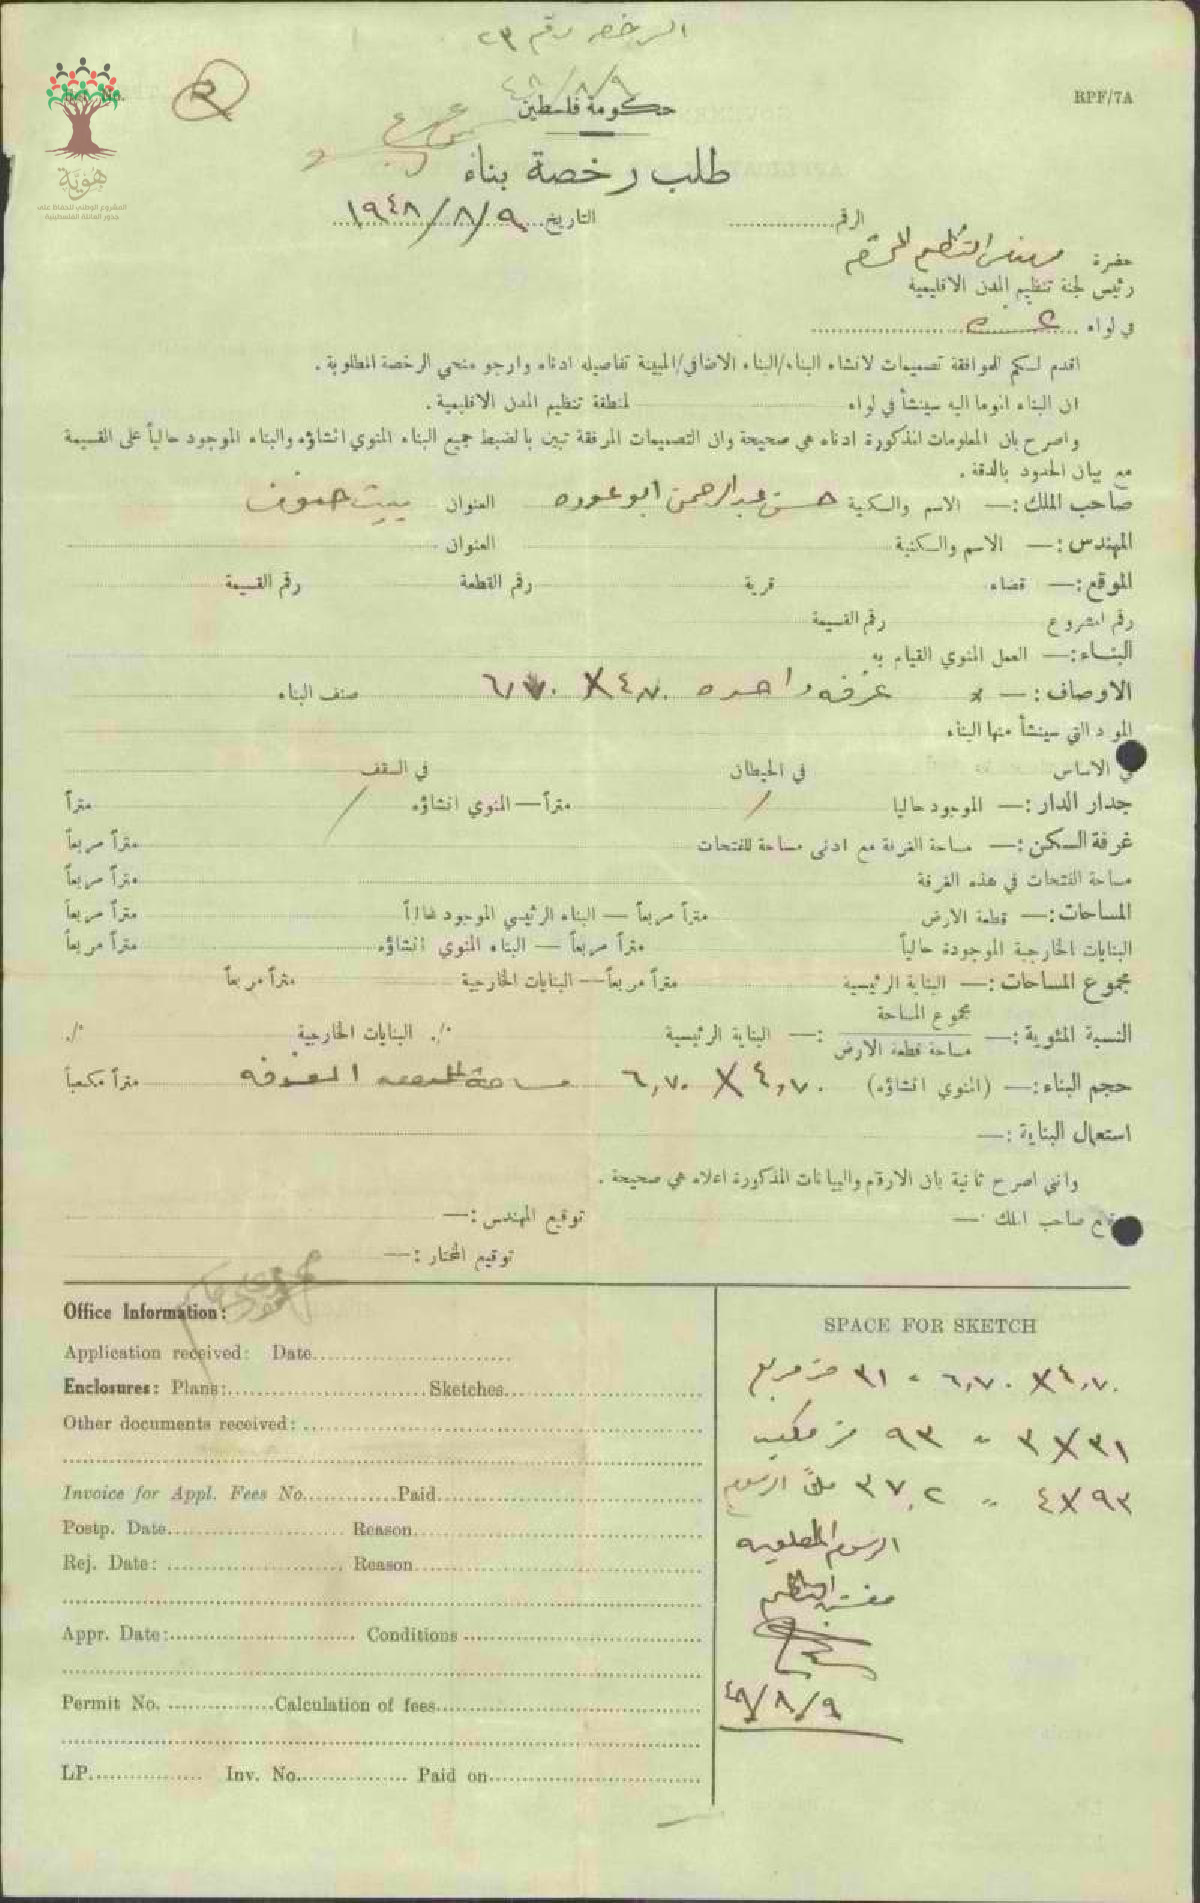 الرخصه رقم ٢٣
٤٨/٨/٩
Ref. No.
RPF/7A
هوية
المشروع الوطني للحفاظ على
جذور العائلة الفلسطينية
حكومة فلسطين
طلب رخصة بناء
الرقم
التاريخ ١٩٤٨/٨/٩
حضرة مهندس التنظيم المحترم
رئيس لجنة تنظيم المدن الاقليمية
في لواء غزه
اقدم لسكم للموافقة تصميمات لانشاء البناء/البناء الاضافي/المبينة تفاصيله ادناه وارجو منحي الرخصة المطلوبة.
ان البناء المومأ اليه سينشأ في لواء لمنطقة تنظيم المدن الاقليمية.
واصرح بان المعلومات المذكورة ادناه هي صحيحة وان التصميمات المرفقة تبين بالضبط جميع البناء المنوي انشاؤه والبناء الموجود حالياً على القسيمة
مع بيان الحدود بالدقة.
صاحب الملك:— الاسم والكنية حسن عبد الرحمن ابو عوده العنوان بيت حنون
المهندس:— الاسم والكنية العنوان
الموقع:— قضاء قرية رقم القطعة رقم القسيمة
رقم المشروع رقم القسيمة
البناء:— العمل المنوي القيام به
الاوصاف:— غرفه واحده ٤،٧٠ X ٦،٧٠ صنف البناء
المواد التي سينشأ منها البناء
في الاساس في الحيطان في السقف
جدار الدار:— الموجود حاليا متراً — المنوي انشاؤه متراً
غرفة السكن:— مساحة الغرفة مع ادنى مساحة للفتحات متراً مربعاً
مساحة الفتحات في هذه الغرفة متراً مربعاً
المساحات:— قطعة الارض متراً مربعاً — البناء الرئيسي الموجود حالياً متراً مربعاً
البنايات الخارجية الموجودة حالياً متراً مربعاً — البناء المنوي انشاؤه متراً مربعاً
مجموع المساحات:— البناية الرئيسية متراً مربعاً — البنايات الخارجية متراً مربعاً
النسبة المئوية:— مجموع المساحة
مساحة قطعة الارض :— البناية الرئيسية ./. البنايات الخارجية ./.
حجم البناء:— (المنوي انشاؤه) ٤،٧٠ X ٦،٧٠ مساحة الغرفه متراً مكعباً
استعمال البناية:—
وانني اصرح ثانية بان الارقام والبيانات المذكورة اعلاه هي صحيحة.
توقيع صاحب الملك — توقيع المهندس:—
توقيع المختار:—
Office Information:
Application received: Date
Enclosures: Plans: Sketches
Other documents received:
Invoice for Appl. Fees No. Paid
Postp. Date Reason
Rej. Date: Reason
Appr. Date: Conditions
Permit No. Calculation of fees
LP. Inv. No. Paid on
SPACE FOR SKETCH
٤،٧٠ X ٦،٧٠ = ٣١ متر مربع
٣١ X ٣ = ٩٣ متر مكعب
٩٣ X ٤ = ٣٧،٢ ملاً الرسوم
الرسوم المطلوبه
مفتش التنظيم
٤٨/٨/٩